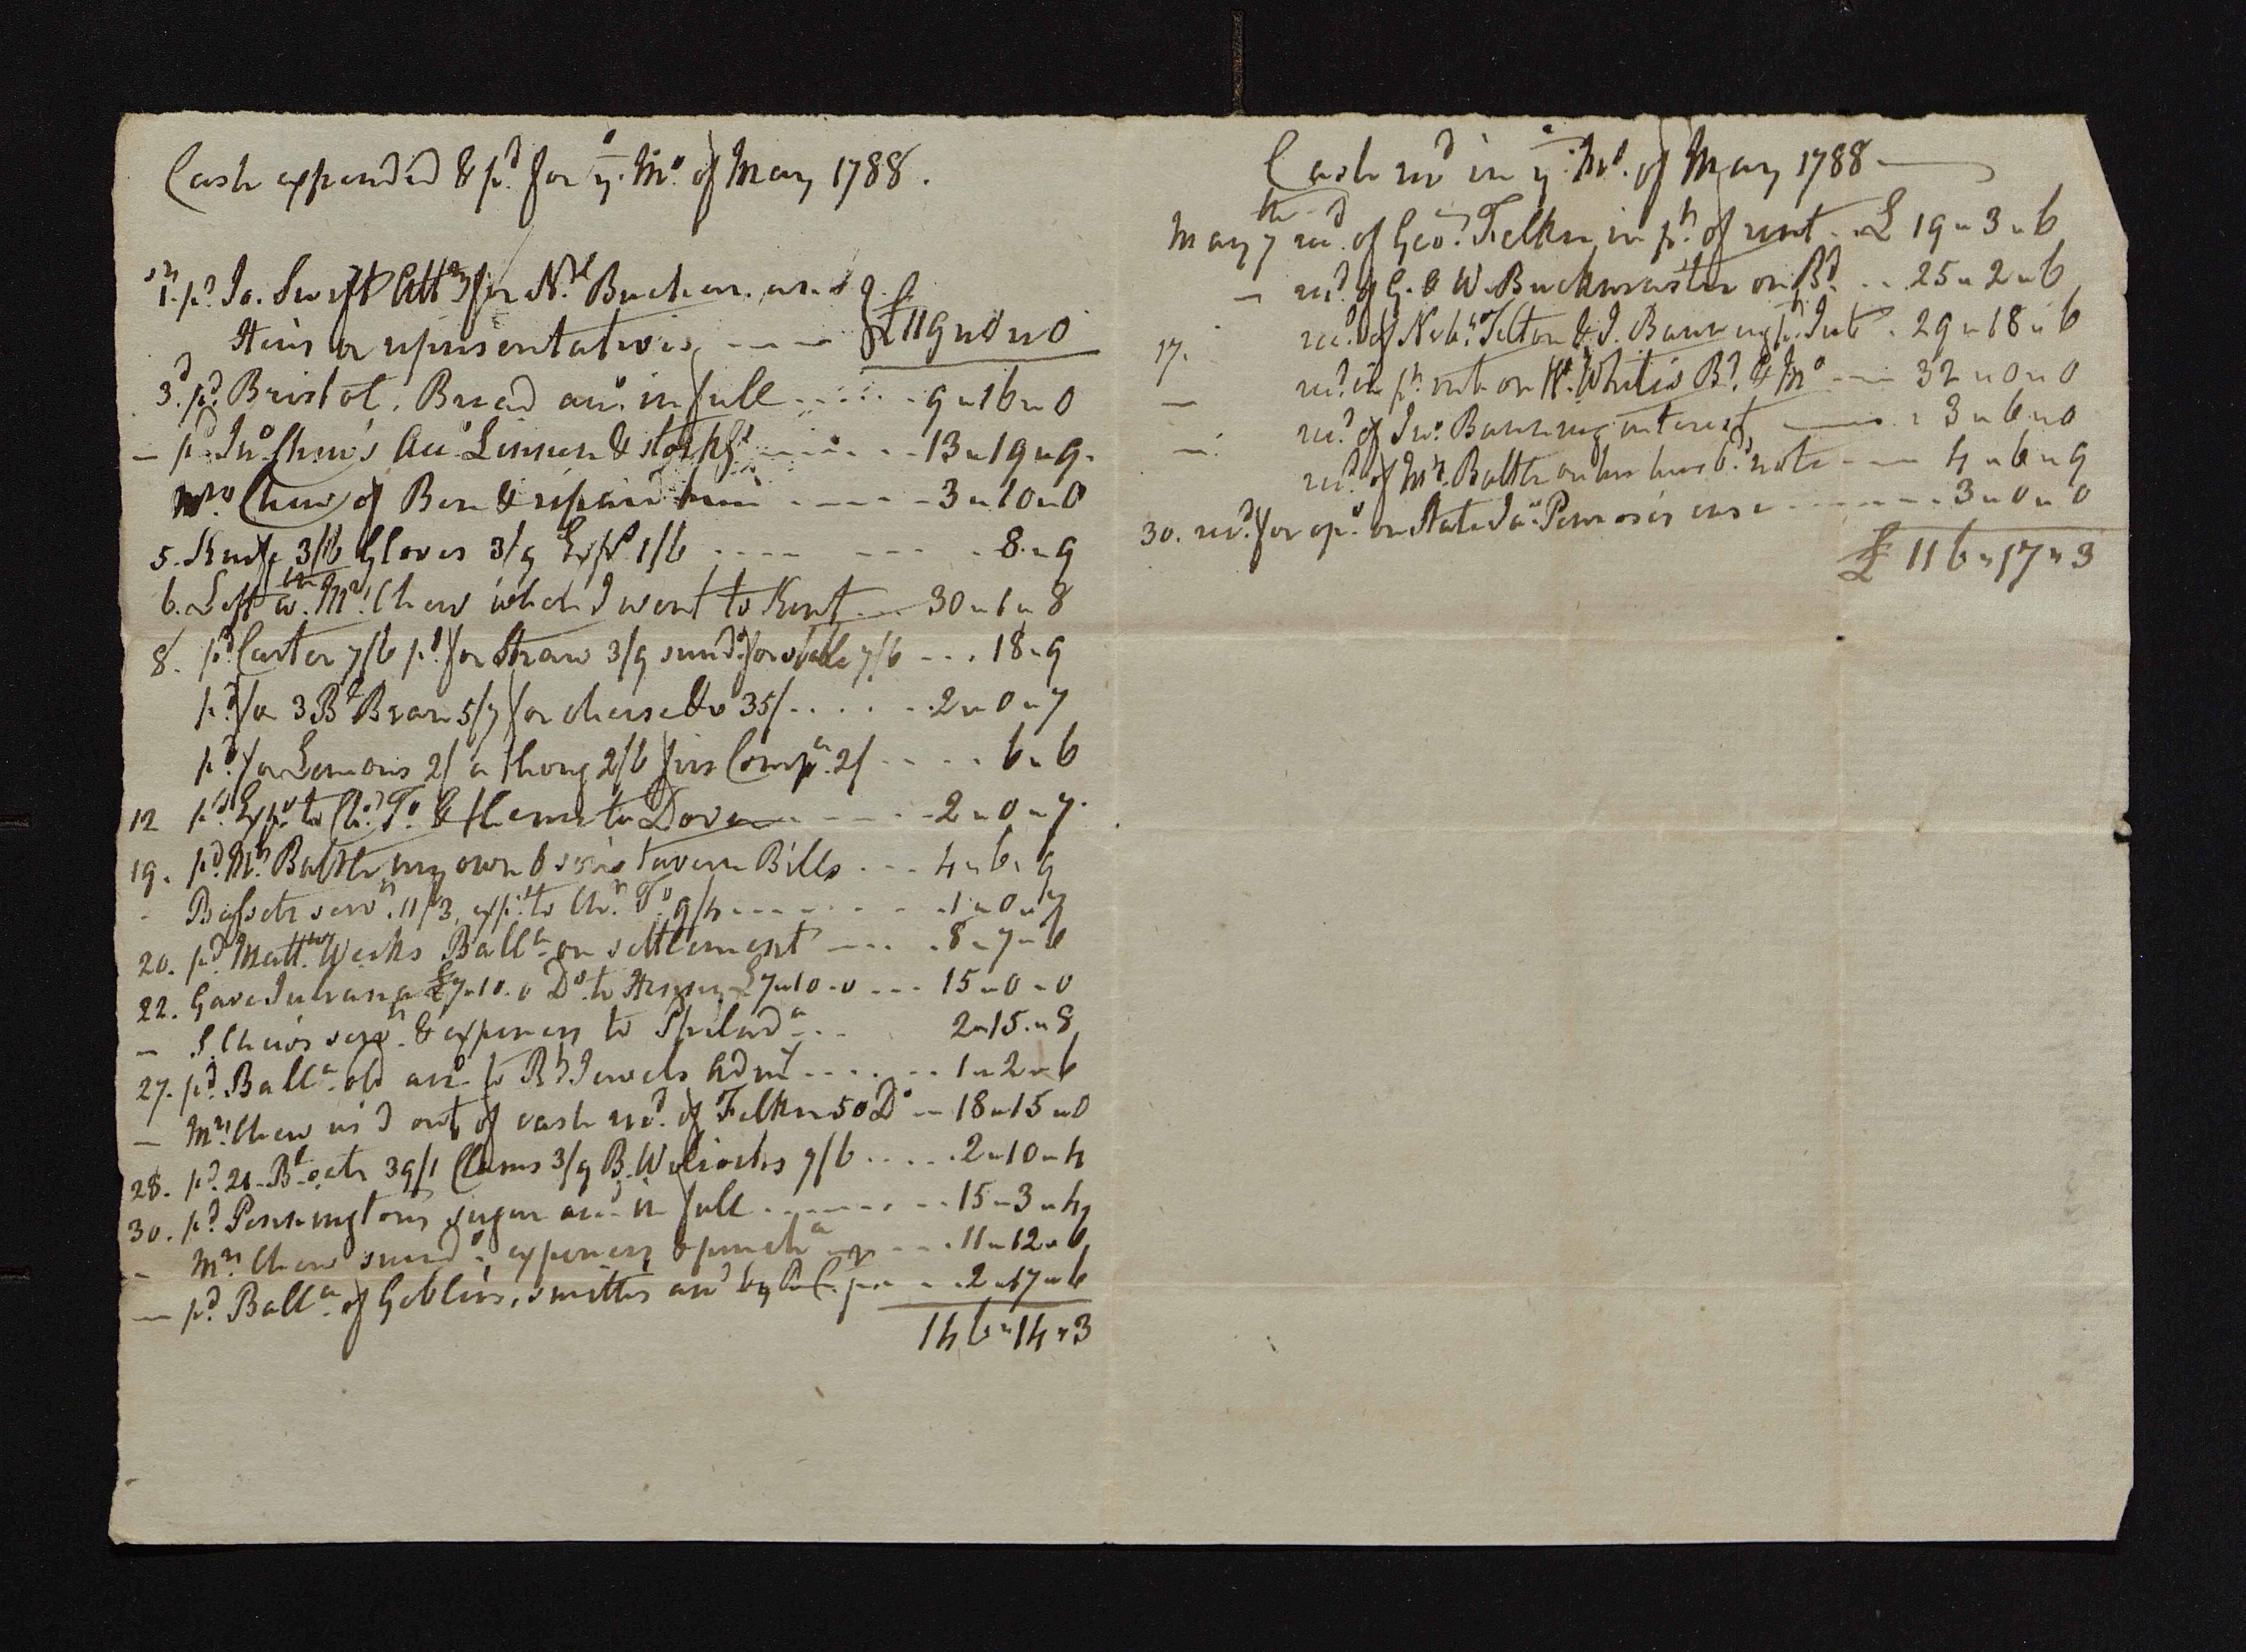 Cash expended & pd. for ye. Mo. of May 1788.
1st. pd. Jo. Swift Atty for Nl. Buchan. and
Heirs or representatives ---- £119"0"0
3d. pd. Bristol. Bread acco. in full ...... 9"16"0
— pd. Jno. Chew's Acco. Linnen & stockgs ...... 13"19"9.
Mrs. Chew of Ben & repaird ---- 3"10"0
5. Knife 3/6 Gloves 3/9 Exps 1/6 .... ---- 8"9
6. Left wth. Mrs. Chew when I went to Kent --- 30"1"8
8. pd. Carter 7/6 pd. for Straw 3/9 sunds. for stable 7/6 --- 18"9
pd. for 3 Bls Bran 5/7 for cheese &c 35/ ...... 2"0"7
pd. for Lemons 2/ a thong 2/6 firs Compa. 2/ ..... 6"6
12 pd. Exps. to Ch. To. & thence to Dover ----- 2"0"7
19. pd. Mrs. Battle my own & servts tavern Bills --- 4"6"9
- Bassets servt. 11/3, exps. to Chr. To. 9/4 -------- 1"0"7
20. pd. Mattw. Weeks Balla. on settlement ---- 8"7"6
22. Gave Juliana £7"10"0 Do. to Henny £7"10"0 --- 15"0"0
— S. Chew's servt. & expences to Philada. .. 2"15"8
27. pd. Balla. old acco. to Rt. Jewels Admr ...... 1"2"6
— Mrs. Chew us'd out of cash recd. of Felkn 50 Do — 18"15"0
28. pd. 21 Bl oats 39/1 Clams 3/9 B. 7/6 ..... 2"10"4
30. pd. Penningtons sugar acco. in full ------- 15"3"4
- Mrs. Chew sunds. expences ---- 11"12"6
— pd. Balla. of Geblers, smiths acco - - 2"17"6
146"14"3
Cash recd in ye. Mo. of May 1788
May 7th recd. of Geo. Felkn in pt. of rent - - £ 19"3"6
— recd. of G. & W. Buckmaster on Bd. . . 25"2"6
17. recd. of Neh. Tilton & J. Banning pt. Int . 29"18"6
— recd. in pt. int. on White's Bd. & Mo --- 32"0"0
—. recd. of Jno. Banning interest ---- 3"6"0
recd. of Mrs. Battle on her husbds. note --- 4"6"9
30. recd. for opo. on State Jas. Penrose's case ------- 3"0"0
£ 116"17"3